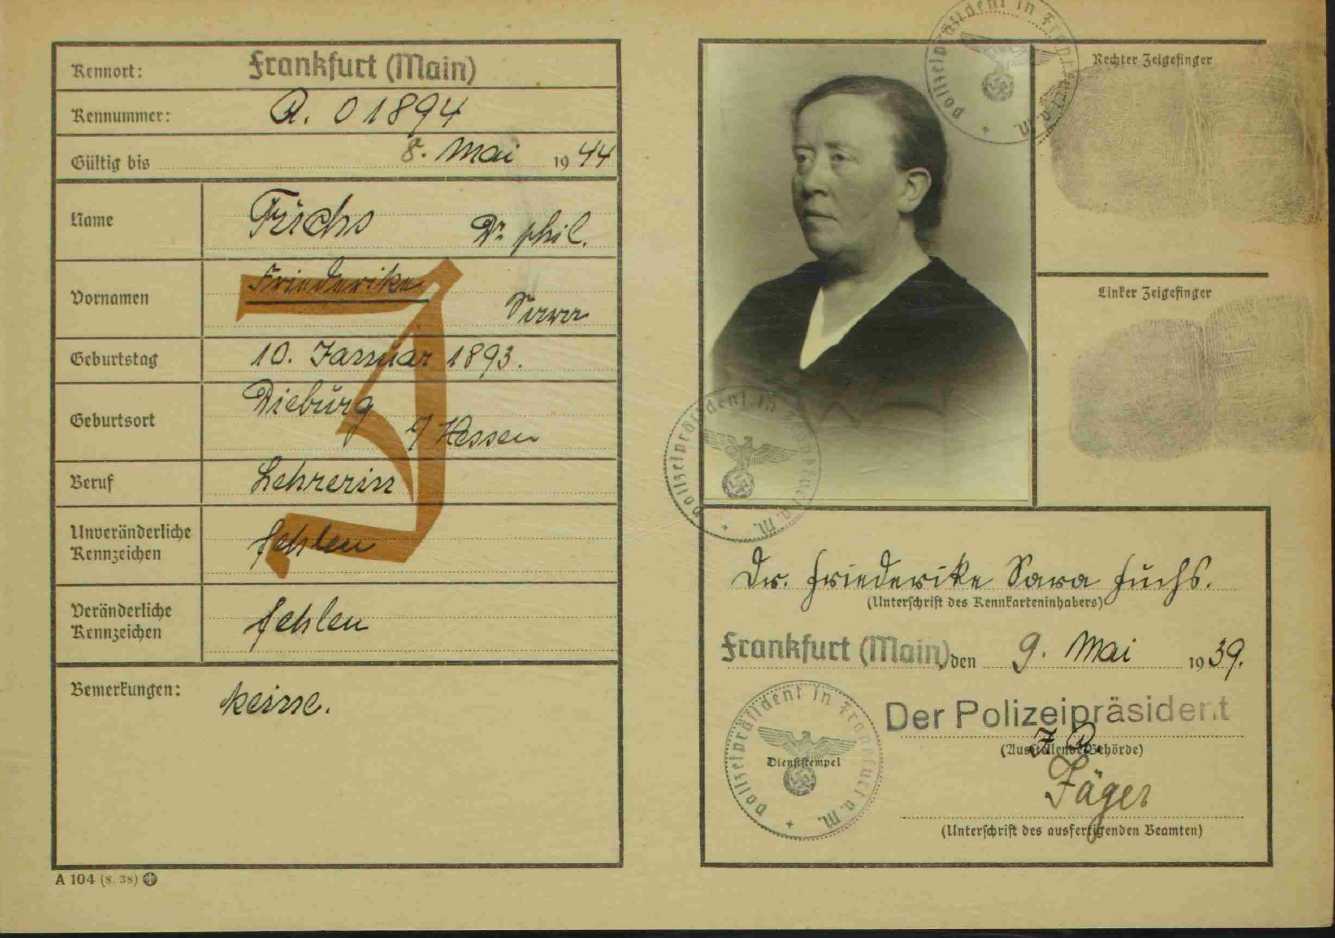 Kennort: Frankfurt (Main)
Kennummer: A. 01894
Gültig bis 8. Mai 1944
Name Fuchs Dr. phil.
Vornamen Friederike
Sara
Geburtstag 10. Januar 1893.
Geburtsort Dieburg
i/ Hessen
Beruf Lehrerin
Unveränderliche
Kennzeichen fehlen
Veränderliche
Kennzeichen fehlen
Bemerkungen: keine.
J
A 104 (8. 38)
Polizeipräsident in Frankfurt a. M.
Rechter Zeigefinger
Linker Zeigefinger
Polizeipräsident in Frankfurt a. M.
Dr. Friederike Sara Fuchs.
(Unterschrift des Kennkarteninhabers)
Frankfurt (Main) den 9. Mai 1939.
Polizeipräsident in Frankfurt a. M.
Dienststempel
Der Polizeipräsident
(Ausstellende Behörde)
Jäger
(Unterschrift des ausfertigenden Beamten)